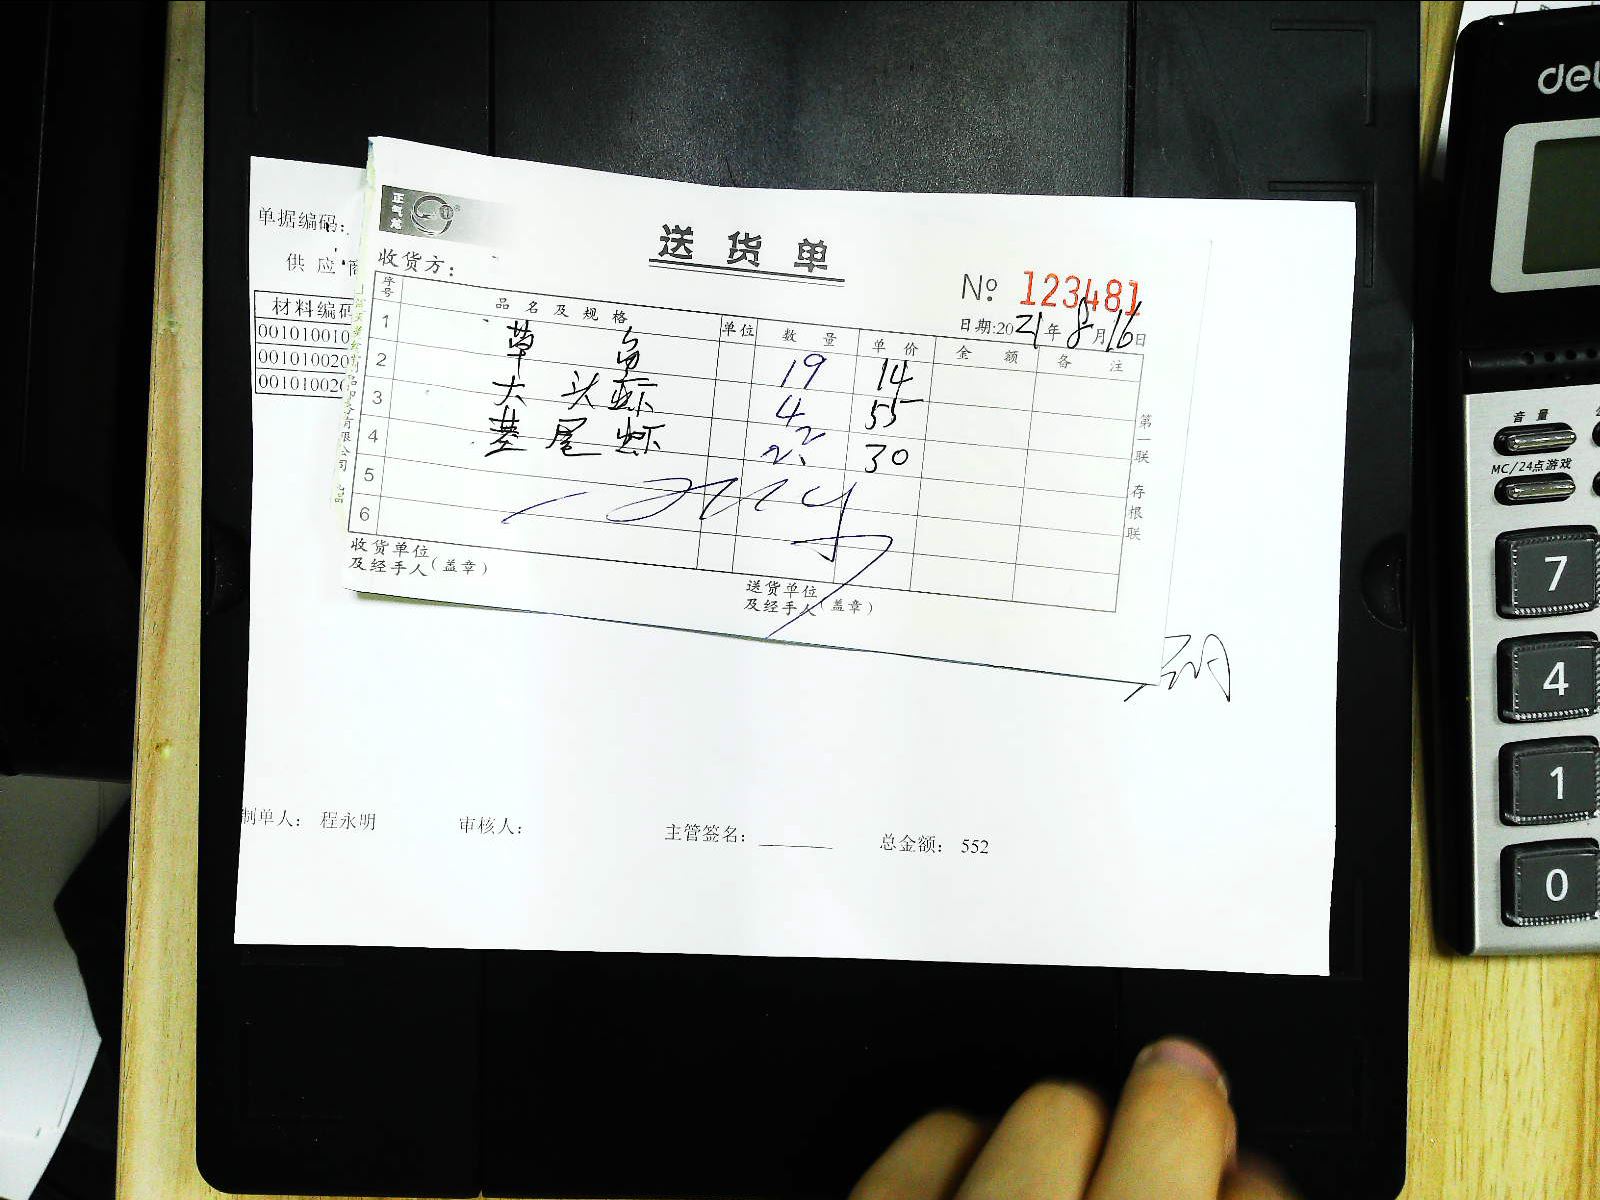 正气龙
送货单
单据编码:
供应商
收货方:
№ 123481
日期:2021年8月16日
材料编码
001010010
001010020
001010020
序号 品名及规格 单位 数量 单价 金额 备注
1 草鱼 19 14
2 大头虾 4 55
3 基尾虾 2.2 30
4
5
6
第一联 存根联
收货单位
及经手人(盖章)
送货单位
及经手人(盖章)
制单人: 程永明 审核人: 主管签名: 总金额: 552
del
音量
MC/24点游戏
7
4
1
0